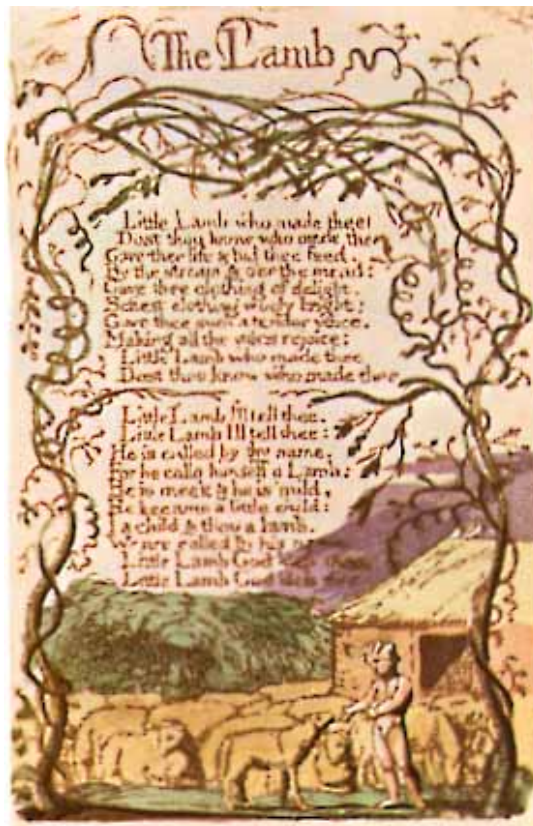 The Lamb
Little Lamb who made thee
Dost thou know who made thee
Gave thee life & bid thee feed.
By the stream & o'er the mead;
Gave thee clothing of delight,
Softest clothing wooly bright;
Gave thee such a tender voice,
Making all the vales rejoice:
Little Lamb who made thee
Dost thou know who made thee
Little Lamb I'll tell thee,
Little Lamb I'll tell thee:
He is called by thy name,
For he calls himself a Lamb:
He is meek & he is mild,
He became a little child:
I a child & thou a lamb,
We are called by his
Little Lamb God bless thee.
Little Lamb God bless thee.